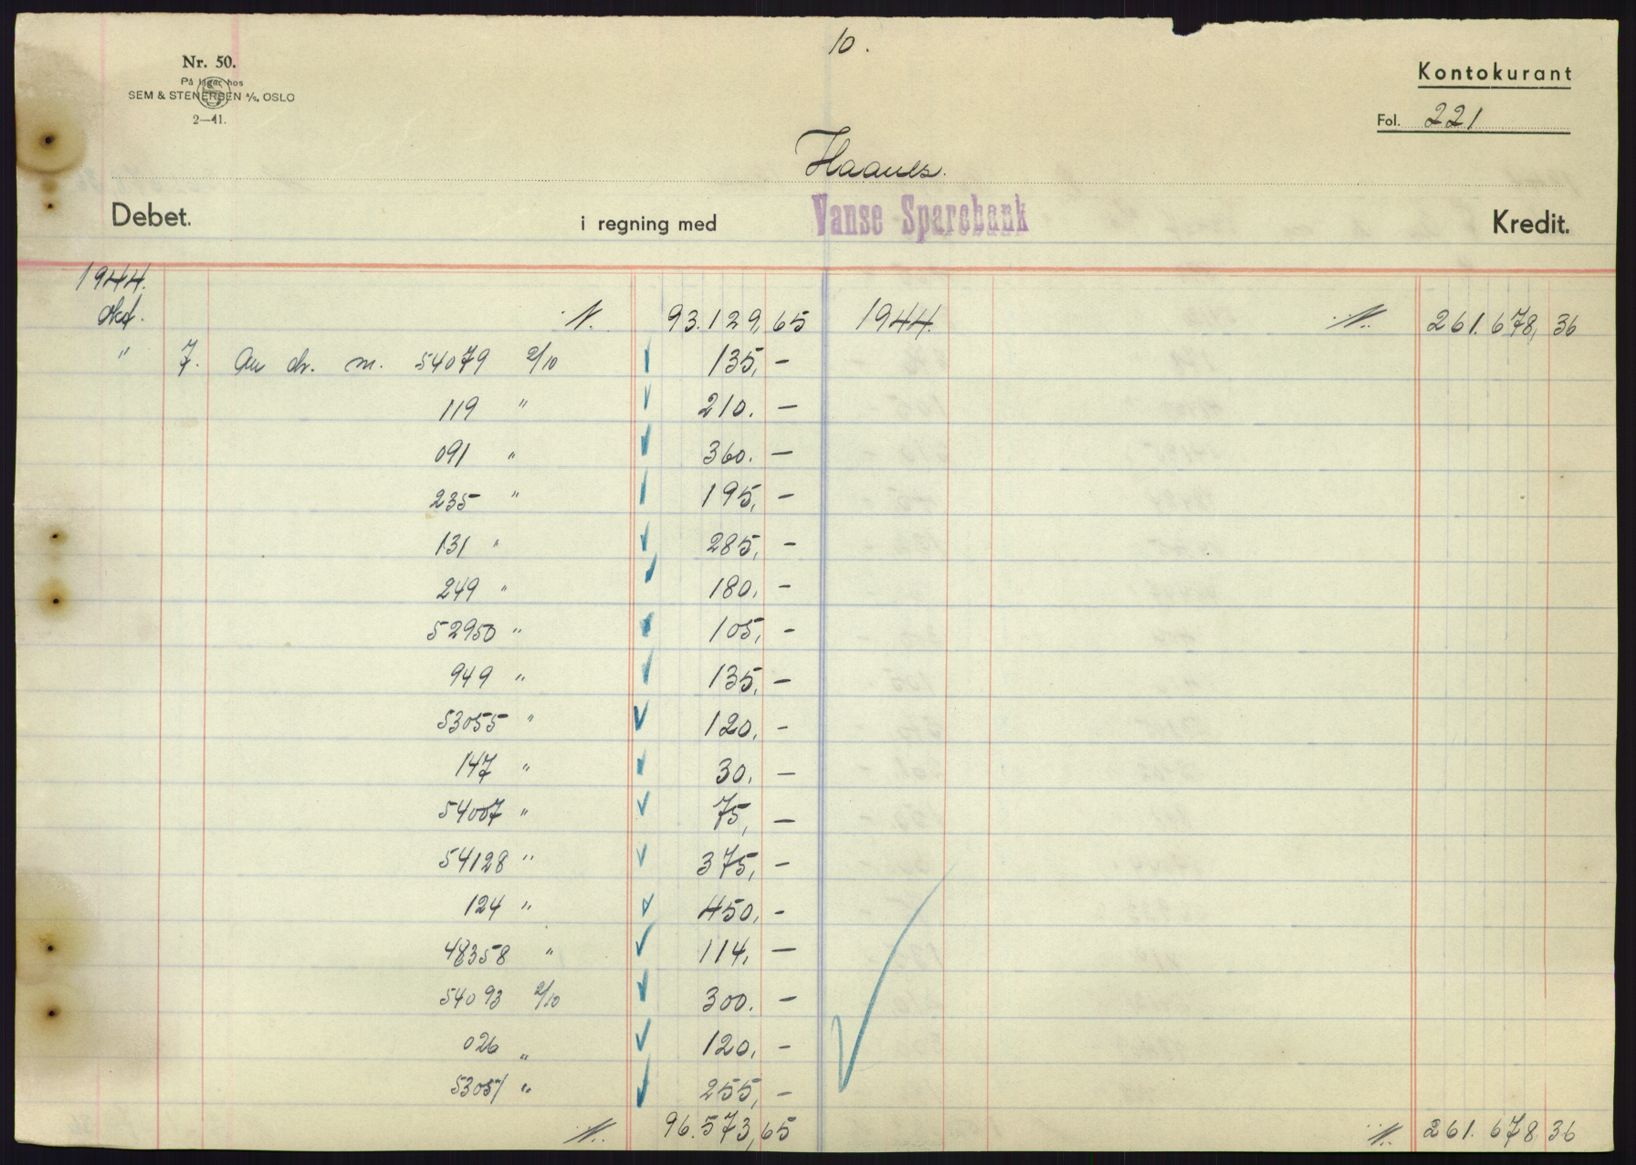 10.
Nr. 50.
På lager hos
SEM & STENERSEN A/S, OSLO
2—41.
Kontokurant
Fol. 221
Haanes.
Debet. i regning med Vanse Sparebank Kredit.
1944.
Okt. N. 93.129,65 1944. N. 261.678,36
" 7. An dr. m. 54079 2/10 135,-
119 " 210.-
091 " 360.-
235 " 195,-
131 " 285,-
249 " 180,-
52950 " 105,-
949 " 135,-
53055 " 120,-
147 " 30.-
54007 " 75,-
54128 " 375,-
124 " 450,-
48358 " 114,-
54093 2/10 300.-
026 " 120,-
53051 " 255,-
N. 96.573,65 N. 261.678,36